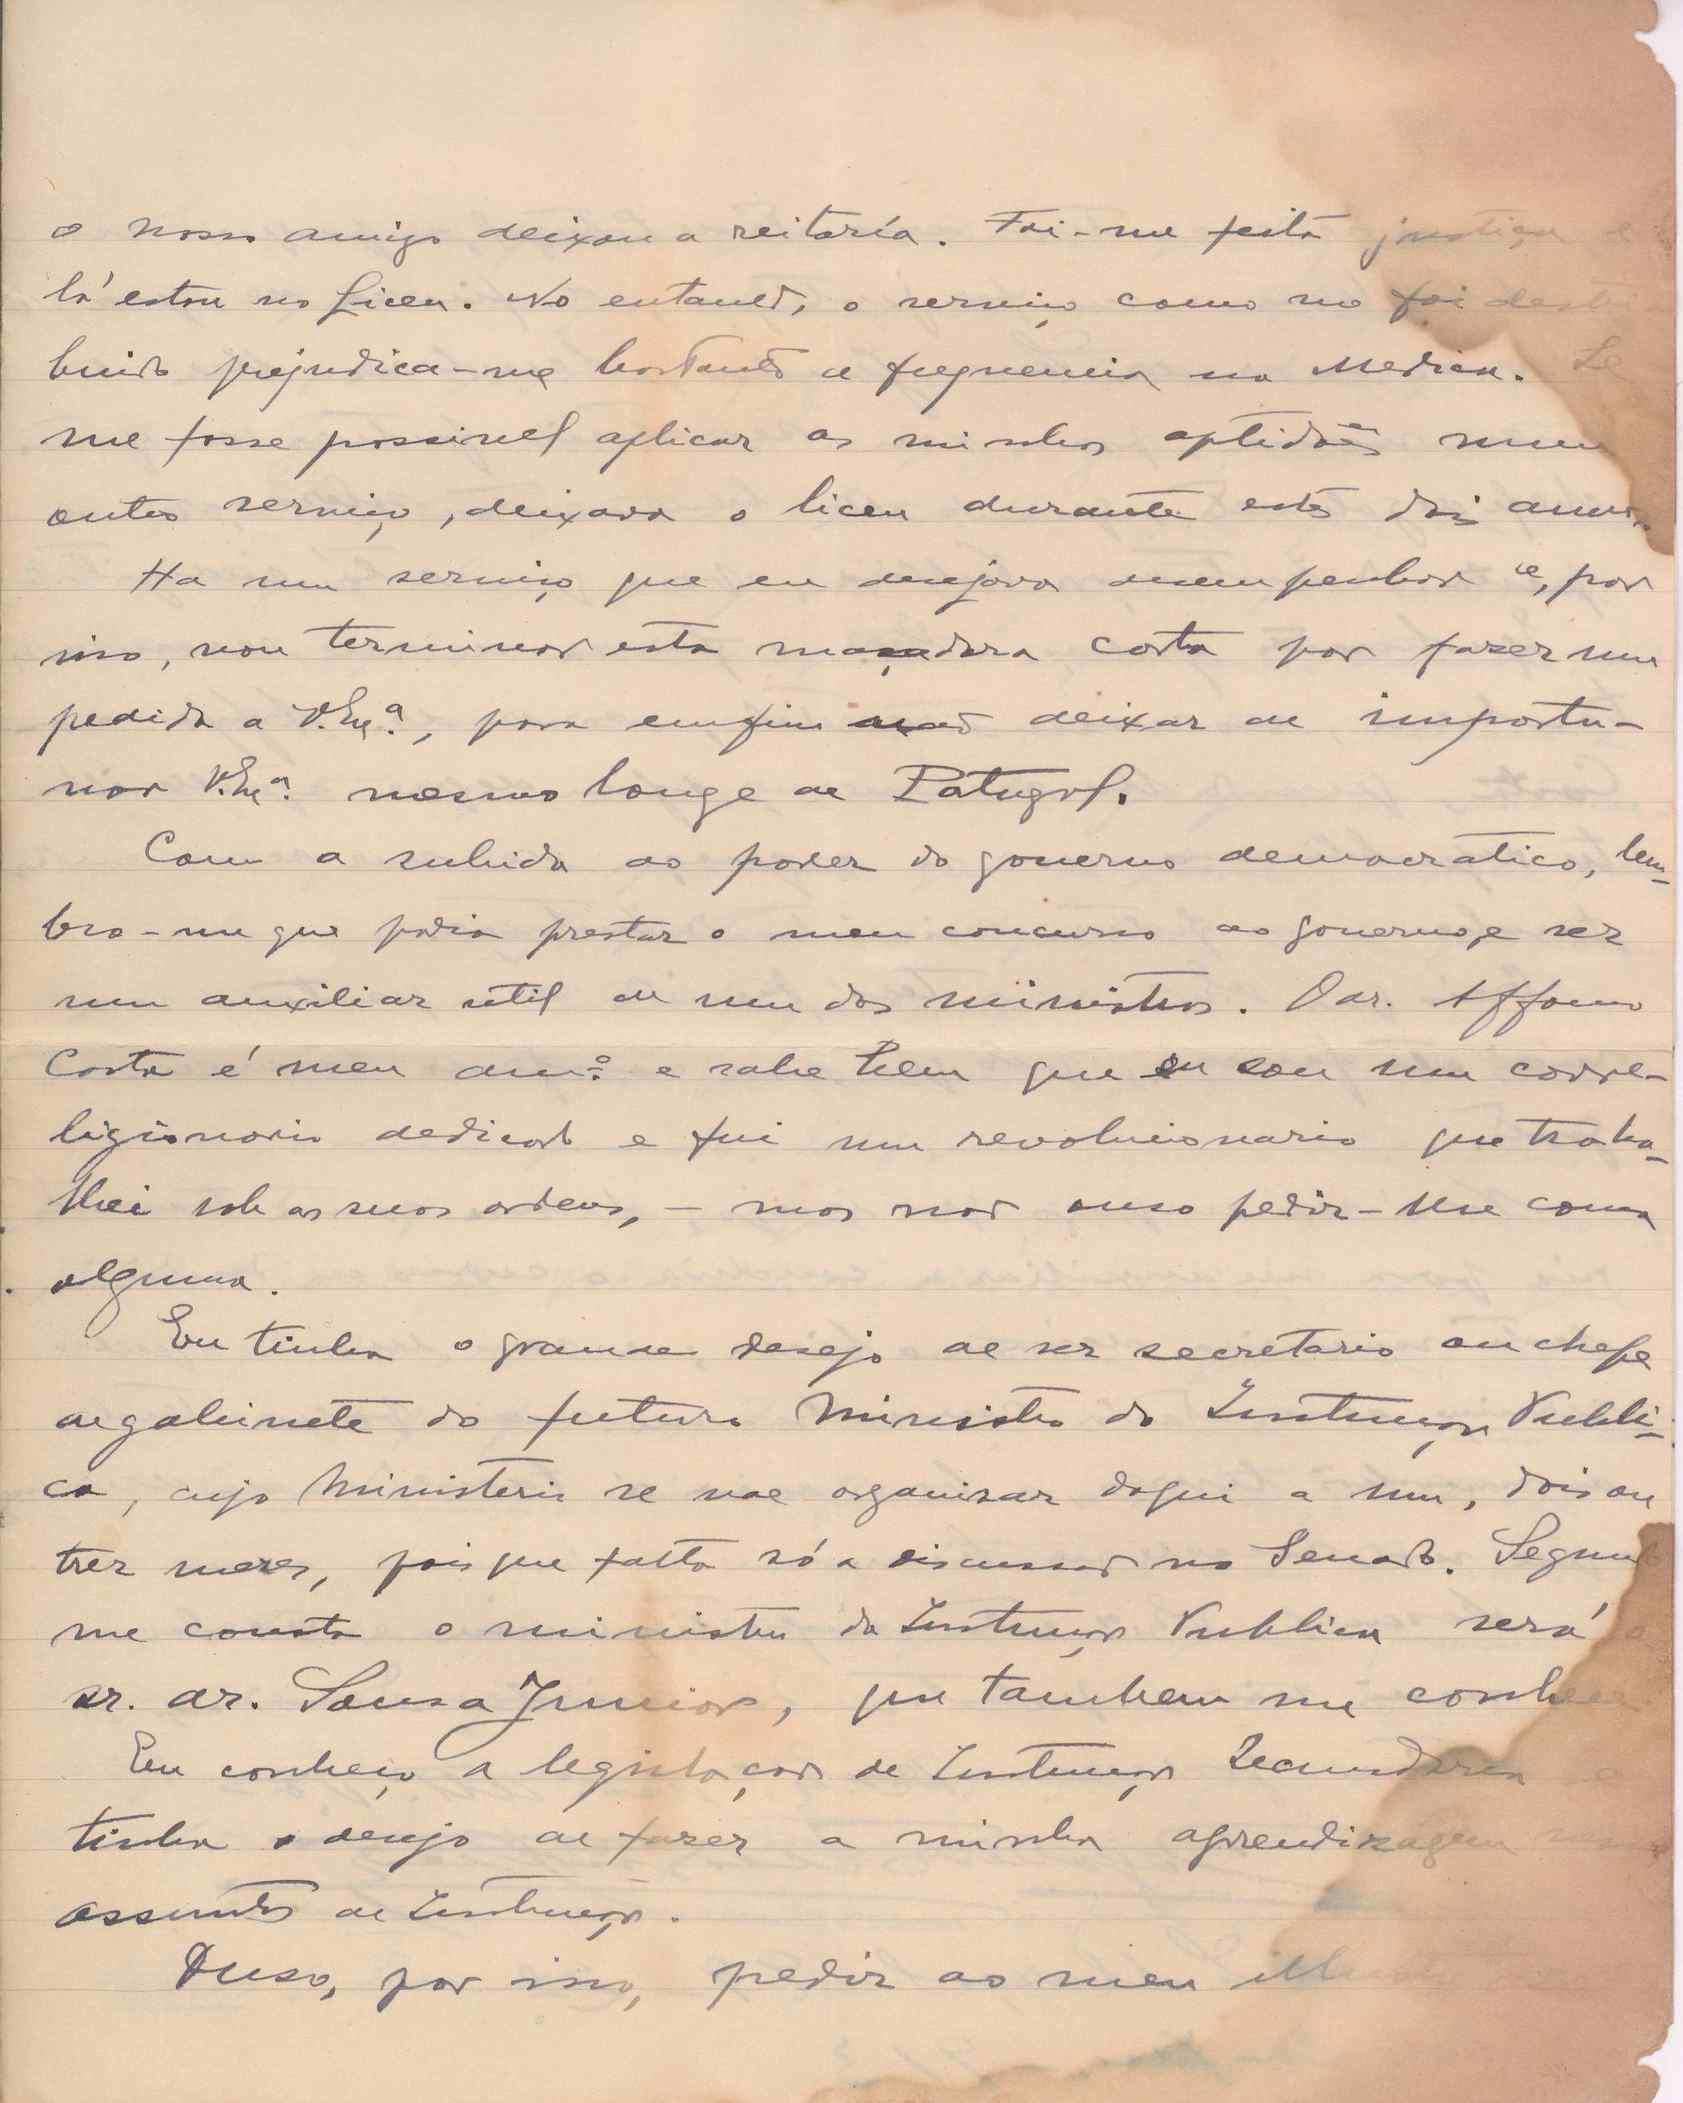 o nosso amigo deixou a reitoría. Foi-me feita justiça e
lá estou no Liceu. No entanto, o serviço como me foi destri
buido prejudica-me bastante a frequencia na Medica. Se
me fosse possivel aplicar as minhas aptidões num
outro serviço, deixava o liceu durante estes dois annos.
Ha um serviço que eu desejava desempenhar e, por
isso, vou terminar esta maçadora carta por fazer um
pedido a V. Ex.ª, para emfim não deixar de importu-
nar V. Ex.ª mesmo longe de Portugal.
Com a subida ao poder do governo democratico, lem-
bro-me que podia prestar o meu concurso ao governo, e ser
um auxiliar util de um dos ministros. O dr. Affonso
Costa é meu am.º e sabe bem que eu sou um corre-
ligionario dedicado e fui um revolucionario que traba-
lhei sob as suas ordens, – mas não ouso pedir-lhe cousa
alguma.
Eu tinha o grande desejo de ser secretario ou chefe
de gabinete do futuro Ministro da Instrução Publi-
ca, cujo Ministerio se vae organisar daqui a um, dois ou
trez mezes, pois que falta só a discussão no Senado. Segundo
me consta o ministro da Instrução Publica será o
sr. dr. Sousa Junior, que tambem me conhece
Eu conheço a legislação de Instrução Secundaria e
tinha o desejo de fazer a minha aprendizagem
assuntos de Instrução.
Ouso, por isso, pedir ao meu